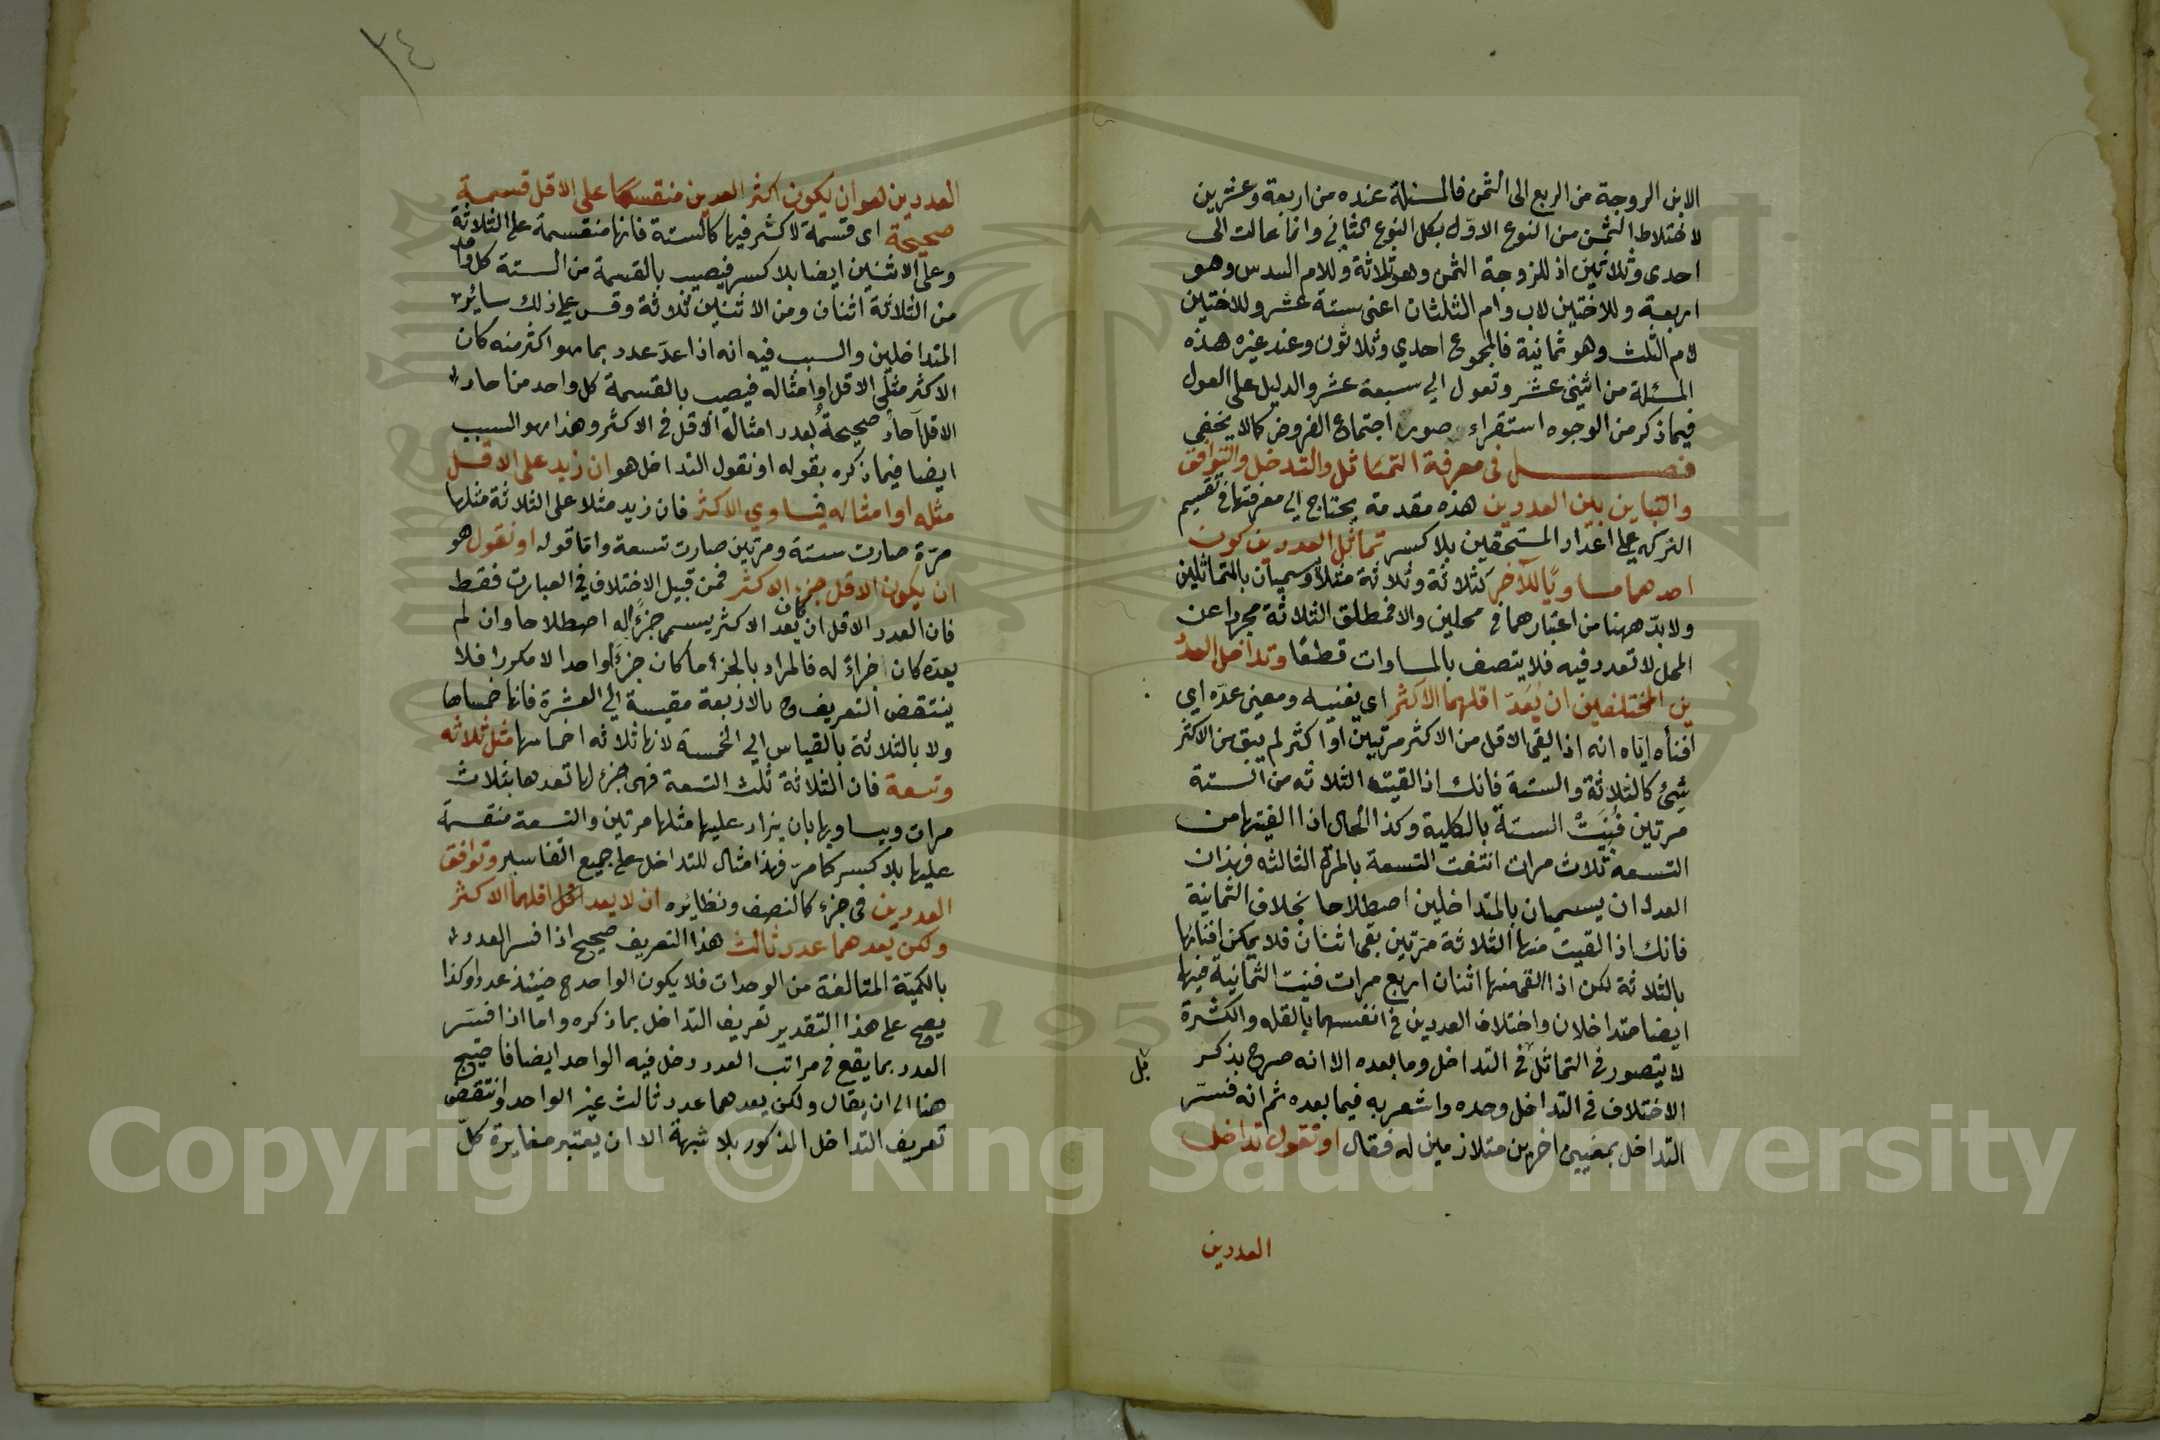 الابن الزوجة من الربع الى الثمن فالمسئلة عنده من اربعة وعشرين
لاختلاط الثمن من النوع الاول بكل النوع الثاني وانما عالت الى
احدى وثلاثين اذ للزوجة الثمن وهو ثلاثة وللام السدس وهو
اربعة وللاختين لاب وام الثلثان اعنى ستة عشر وللاختين
لام الثلث وهو ثمانية فالمجموع احدي وثلاثون وعند غيره هذه
المسئلة من اثنى عشر وتعول الي سبعة عشر والدليل على العول
فيما ذكر من الوجوه استقراء صور اجتماع الفروض كما لا يخفى
فصل فى معرفة التماثل والتدخل والتوافق
والتباين بين العددين هذه مقدمة يحتاج الي معرفتها في تقسيم
التركه علي اعداد المستحقين بلا كسر تماثل العددين كون
احدهما مساويًا للآخر كثلاثة وثلاثة مثلا ويسميان بالمتماثلين
ولا بدّ ههنا من اعتبارهما في محلين والا فمطلق الثلاثة مجردا عن
المحل لا تعدد فيه فلا يتصف بالمساوات قطعًا وتداخل العدد
ين المختلفين ان يَعُدّ اقلهما الاكثر اى يفنيه ومعنى عدّه اي
افناه اياه انه اذا القي الاقل من الاكثر مرتين او اكثر لم يبق من الاكثر
شيئ كالثلاثة والستة فانك اذا القيت الثلاثه من الستة
مرتين فنيت الستة بالكلية وكذا الحال اذا القيتها من
التسعة ثلاث مرات انتفت التسعة بالمرة الثالثه فهذان
العددان يسميان بالمتداخلين اصطلاحا بخلاف الثمانية
فانك اذا القيت منها الثلاثة مرتين بقى اثنان فلا يمكن افنائها
بالثلاثة لكن اذا القى منها اثنان اربع مرات فنيت الثمانية فهما
ايضا متداخلان واختلاف العددين فى انفسهما بالقله والكثرة
لا يتصور فى التماثل فى التداخل وما بعده الا انه صرح بذكر
بل
الاختلاف فى التداخل وحده واشعر به فيما بعده ثم انه فسّر
التداخل بمعنيين اخرين متلازمين له فقال او تقول تداخل
العددين
٣٤
العددين هو ان يكون اكثر العددين منقسمًا على الاقل قسمة
صحيحة اى قسمة لا كسر فيها كالستة فانها منقسمة على الثلاثة
وعلى الاثنين ايضا بلا كسر فيصيب بالقسمة من الستة كل واحد
من الثلاثة اثنان ومن الاثنين ثلاثة وقس علي ذلك سائر
المتداخلين والسبب فيه انه اذا عدّ عدد بما هو اكثر منه كان
الاكثر مثلى الاقل او امثاله فيصيب بالقسمة كل واحد من احاد
الاقل آحاد صحيحة بعدد امثال الاقل فى الاكثر وهذا هو السبب
ايضا فيما ذكره بقوله او نقول التداخل هو ان زيد على الاقل
مثله او امثاله فيساوي الاكثر فان زيد مثلا على الثلاثة مثلها
مرّة صارت ستة ومرتين صارت تسعة واما قوله او نقول هو
ان يكون الاقل جزء الاكثر فمن قبيل الاختلاف في العبارت فقط
فان العدد الاقل ان كان يعد الاكثر يسمى جزءًا له اصطلاحا وان لم
يعدّه كان اجزاءً له فالمراد بالجزء ما كان جزءًا واحدا لا مكررا فلا
ينتقض التعريف بالاربعة مقيسة الي العشرة فانها خمساها
ولا بالثلاثة بالقياس الي الخمسة لانها ثلاثه اخماسها مثل ثلاثه
وتسعة فان الثلاثة ثلث التسعة فهى جزء لها تعدها بثلاث
مرات ويساويها بان يزاد عليها مثلها مرتين والتسعة منقسمة
عليها بلا كسر كما مرّ فهذا مثال للتداخل على جميع التفاسير وتوافق
العددين فى جزء كالنصف ونظايره ان لا يعد اقلهما الاكثر
ولكن يعدهما عدد ثالث هذا التعريف صحيح اذا فسر العدد
بالكميّة المتالفة من الوحدات فلا يكون الواحد ح عددا وكذا
يصح على هذا التقدير تعريف التداخل بما ذكره واما اذا فسّر
العدد بما يقع فى مراتب العدد دخل فيه الواحد ايضا فاحتيج
هنا الى ان يقال ولكن يعدهما عدد ثالث غير الواحد وانتقض
تعريف التداخل المذكور بلا شبهة الا ان يعتبر مغايرة كلّ
Copyright © King Saud University
195